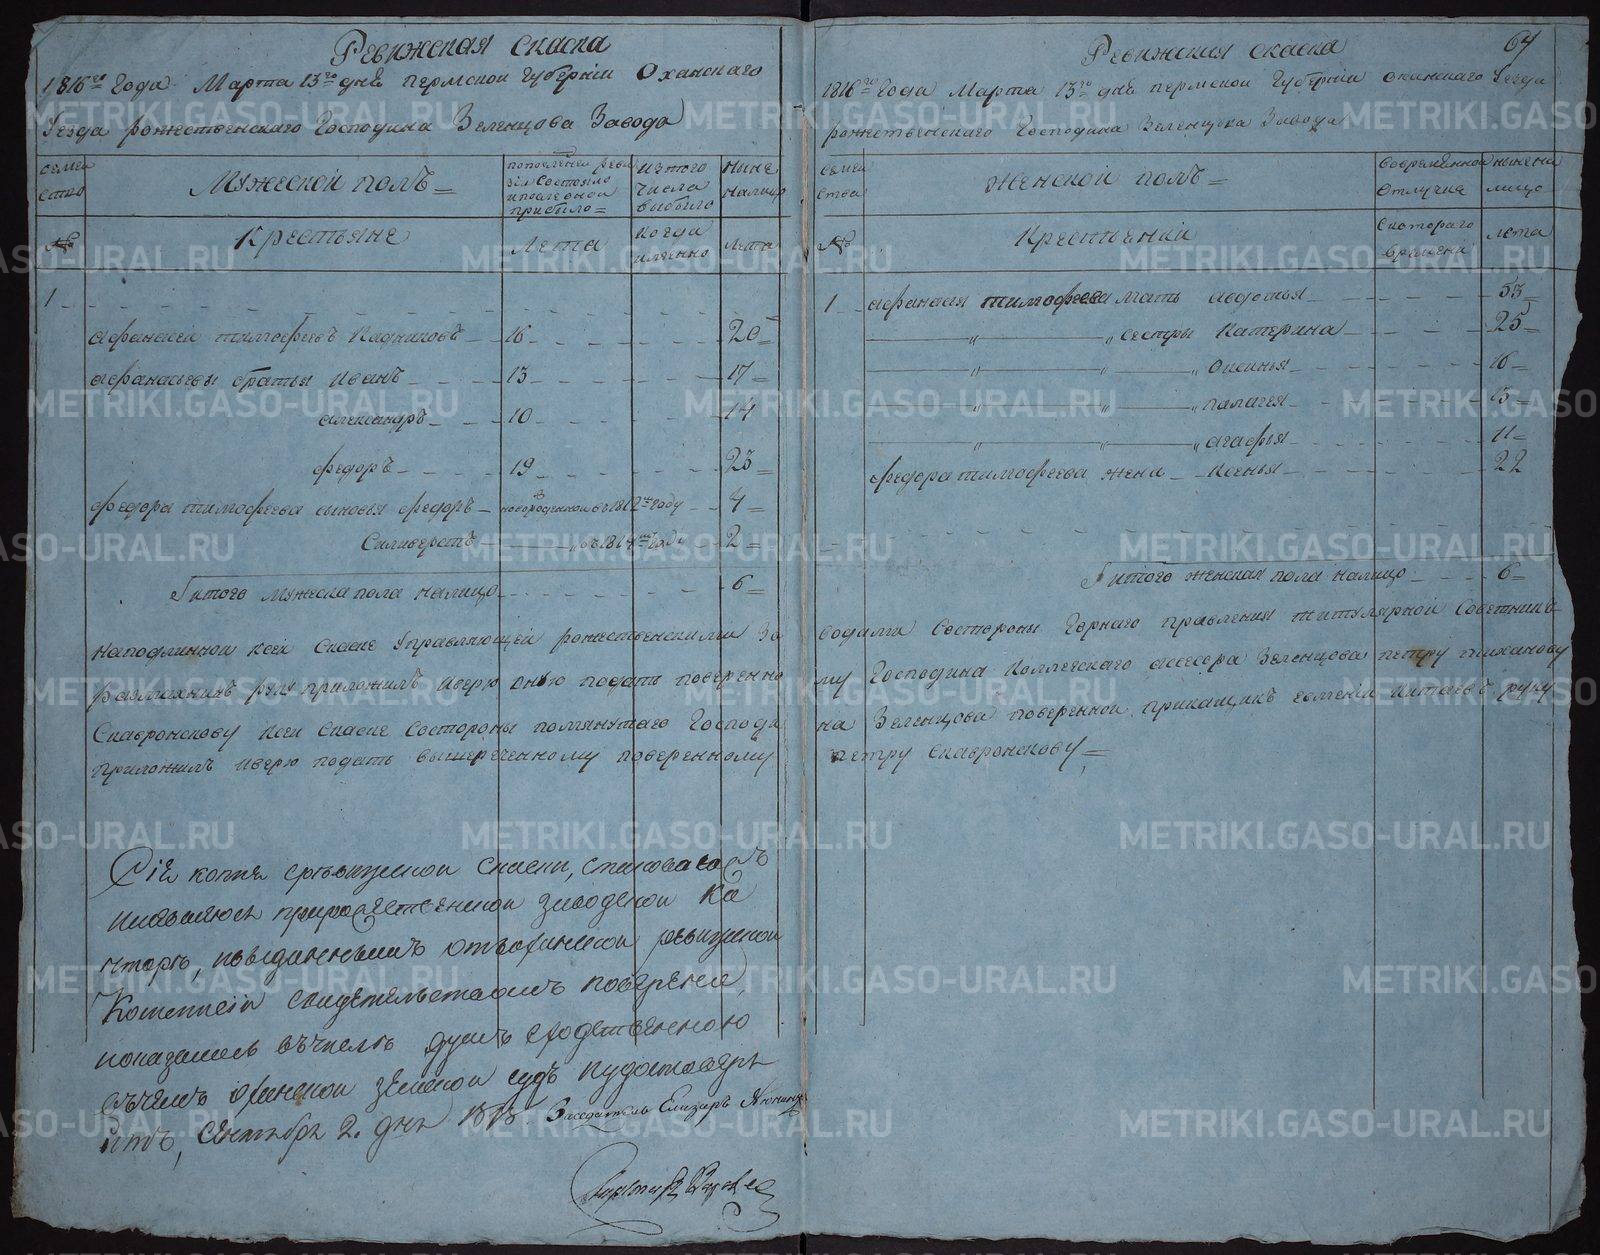 Ревижская скаска
1816го Года Марта 13го днѣ пермской Губерніи Оханскаго
Уезда рожественскаго Господина Зеленцова Завода
семей
ство
Мужескій полъ
по последней реви
зіи состояло
и после оной
прибыло
из того
числа
выбыло
Ныне
налицо
№
Крестьяне
Лета
когда
имянно
лета
1
Афанасей тимофеевъ Кадниковъ 16 20
афанасьевы братья Иванъ 13 17
александръ 10 14
федоръ 19 23
федора тимофеева сыновья федоръ новорожденной въ 1812м году 4
Силиверстъ „ въ 1814м году 2
Итого мужеска пола налицо 6
Наподлинной сей скаске Управляющей рожественскими За
размахнинъ руку приложилъ иверю оную подать поверенно
Скавронскову сей скаске состороны помянутаго Господи
приложилъ иверю подать вышереченному поверенному
Сіе копия сревизской скаски,
заводской Ка
нторе,
Комиссіи свидетельствомъ поверена,
показанось въчисле душъ
въчемъ Оханской земской судъ
итъ, сентября 2. дня 1818. Заседатель Елизаръ
Ревижская скаска
64
1816го Года Марта 13го днѣ пермской Губерніи оханскаго Уезда
рожественскаго Господина Зеленцова Завода
семей
ства
Женской полъ
вовременной
отлучке
ныне на
лицо
№
Крестьянки
скотораго
времени
лета
1 афанасия тимофеева мать авдотья 53
„ „ сестры Катерина 25
„ „ „ Оксинья 16
„ „ „ палагея 13
„ „ „ агафья 11
федора тимофеева жена Ксенья 22
Итого женска пола налицо 6
водами состороны Горнаго правления титулярной советникъ
му Господина Коллегскаго асесора Зеленцова петру тиханову
на Зеленцова поверенной прикащикъ евгеней Китаевъ руку
петру Скавронскову
METRIKI.GASO-URAL.RU